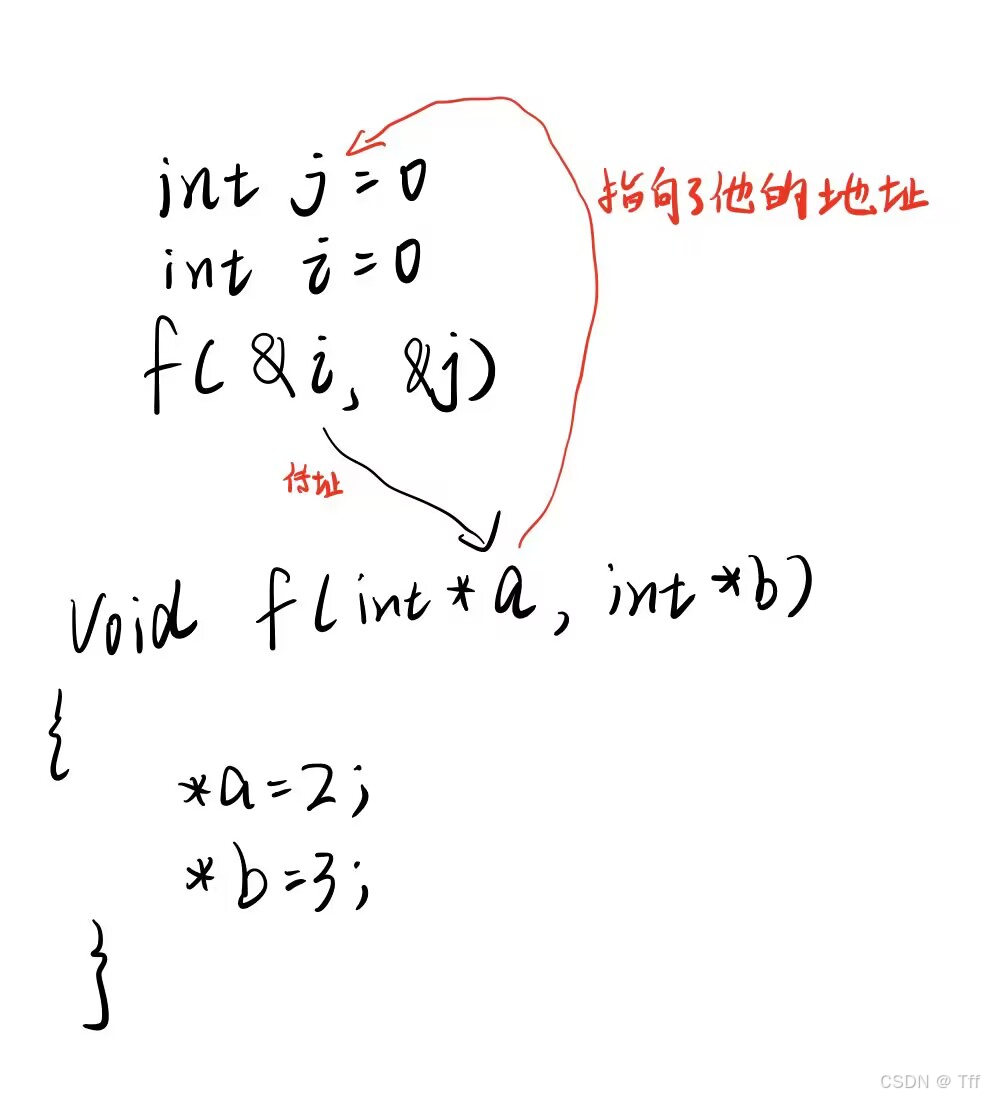 int j=0
指向了他的地址
int i=0
f(&i, &j)
传址
void f(int*a, int*b)
{
*a=2;
*b=3;
}
CSDN @ Tff